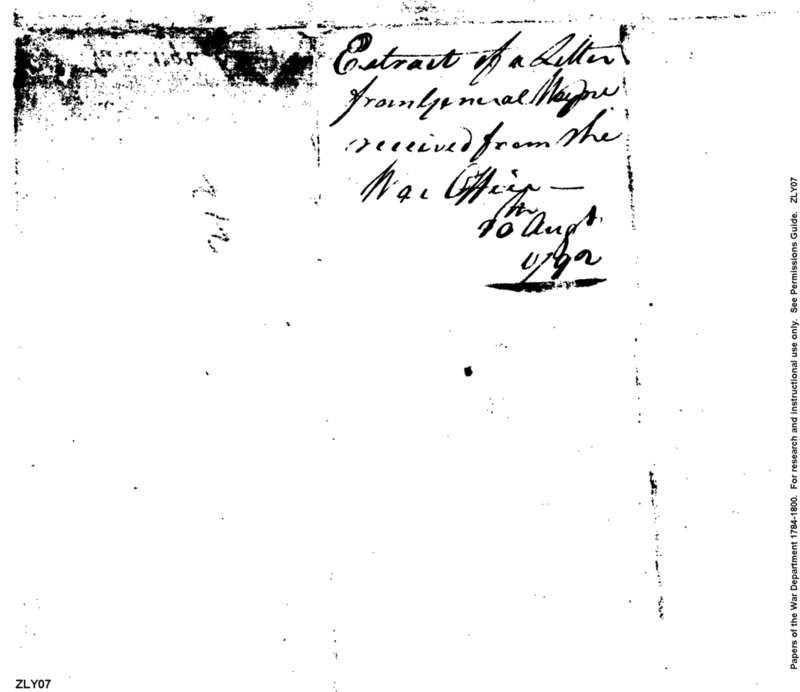 Extract of a Letter
from General Wayne
received from the
War Office —
10th Augt.
1792
Papers of the War Department 1784-1800. For research and instructional use only. See Permissions Guide. ZLY07
ZLY07